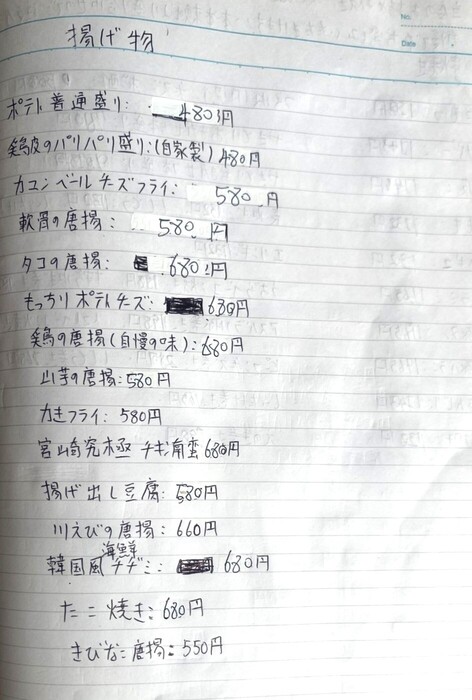 No.
Date
揚げ物
ポテト普通盛り: 480円
鶏皮のパリパリ盛り:(自家製)480円
カマンベールチーズフライ: 580円
軟骨の唐揚: 580円
タコの唐揚: 680円
もっちりポテトチーズ: 680円
鶏の唐揚(自慢の味):680円
山芋の唐揚:580円
カキフライ: 580円
宮崎究極チキン南蛮 680円
揚げ出し豆腐: 580円
川えびの唐揚: 660円
韓国風海鮮チヂミ: 680円
たこ焼き: 680円
きびなご唐揚: 550円